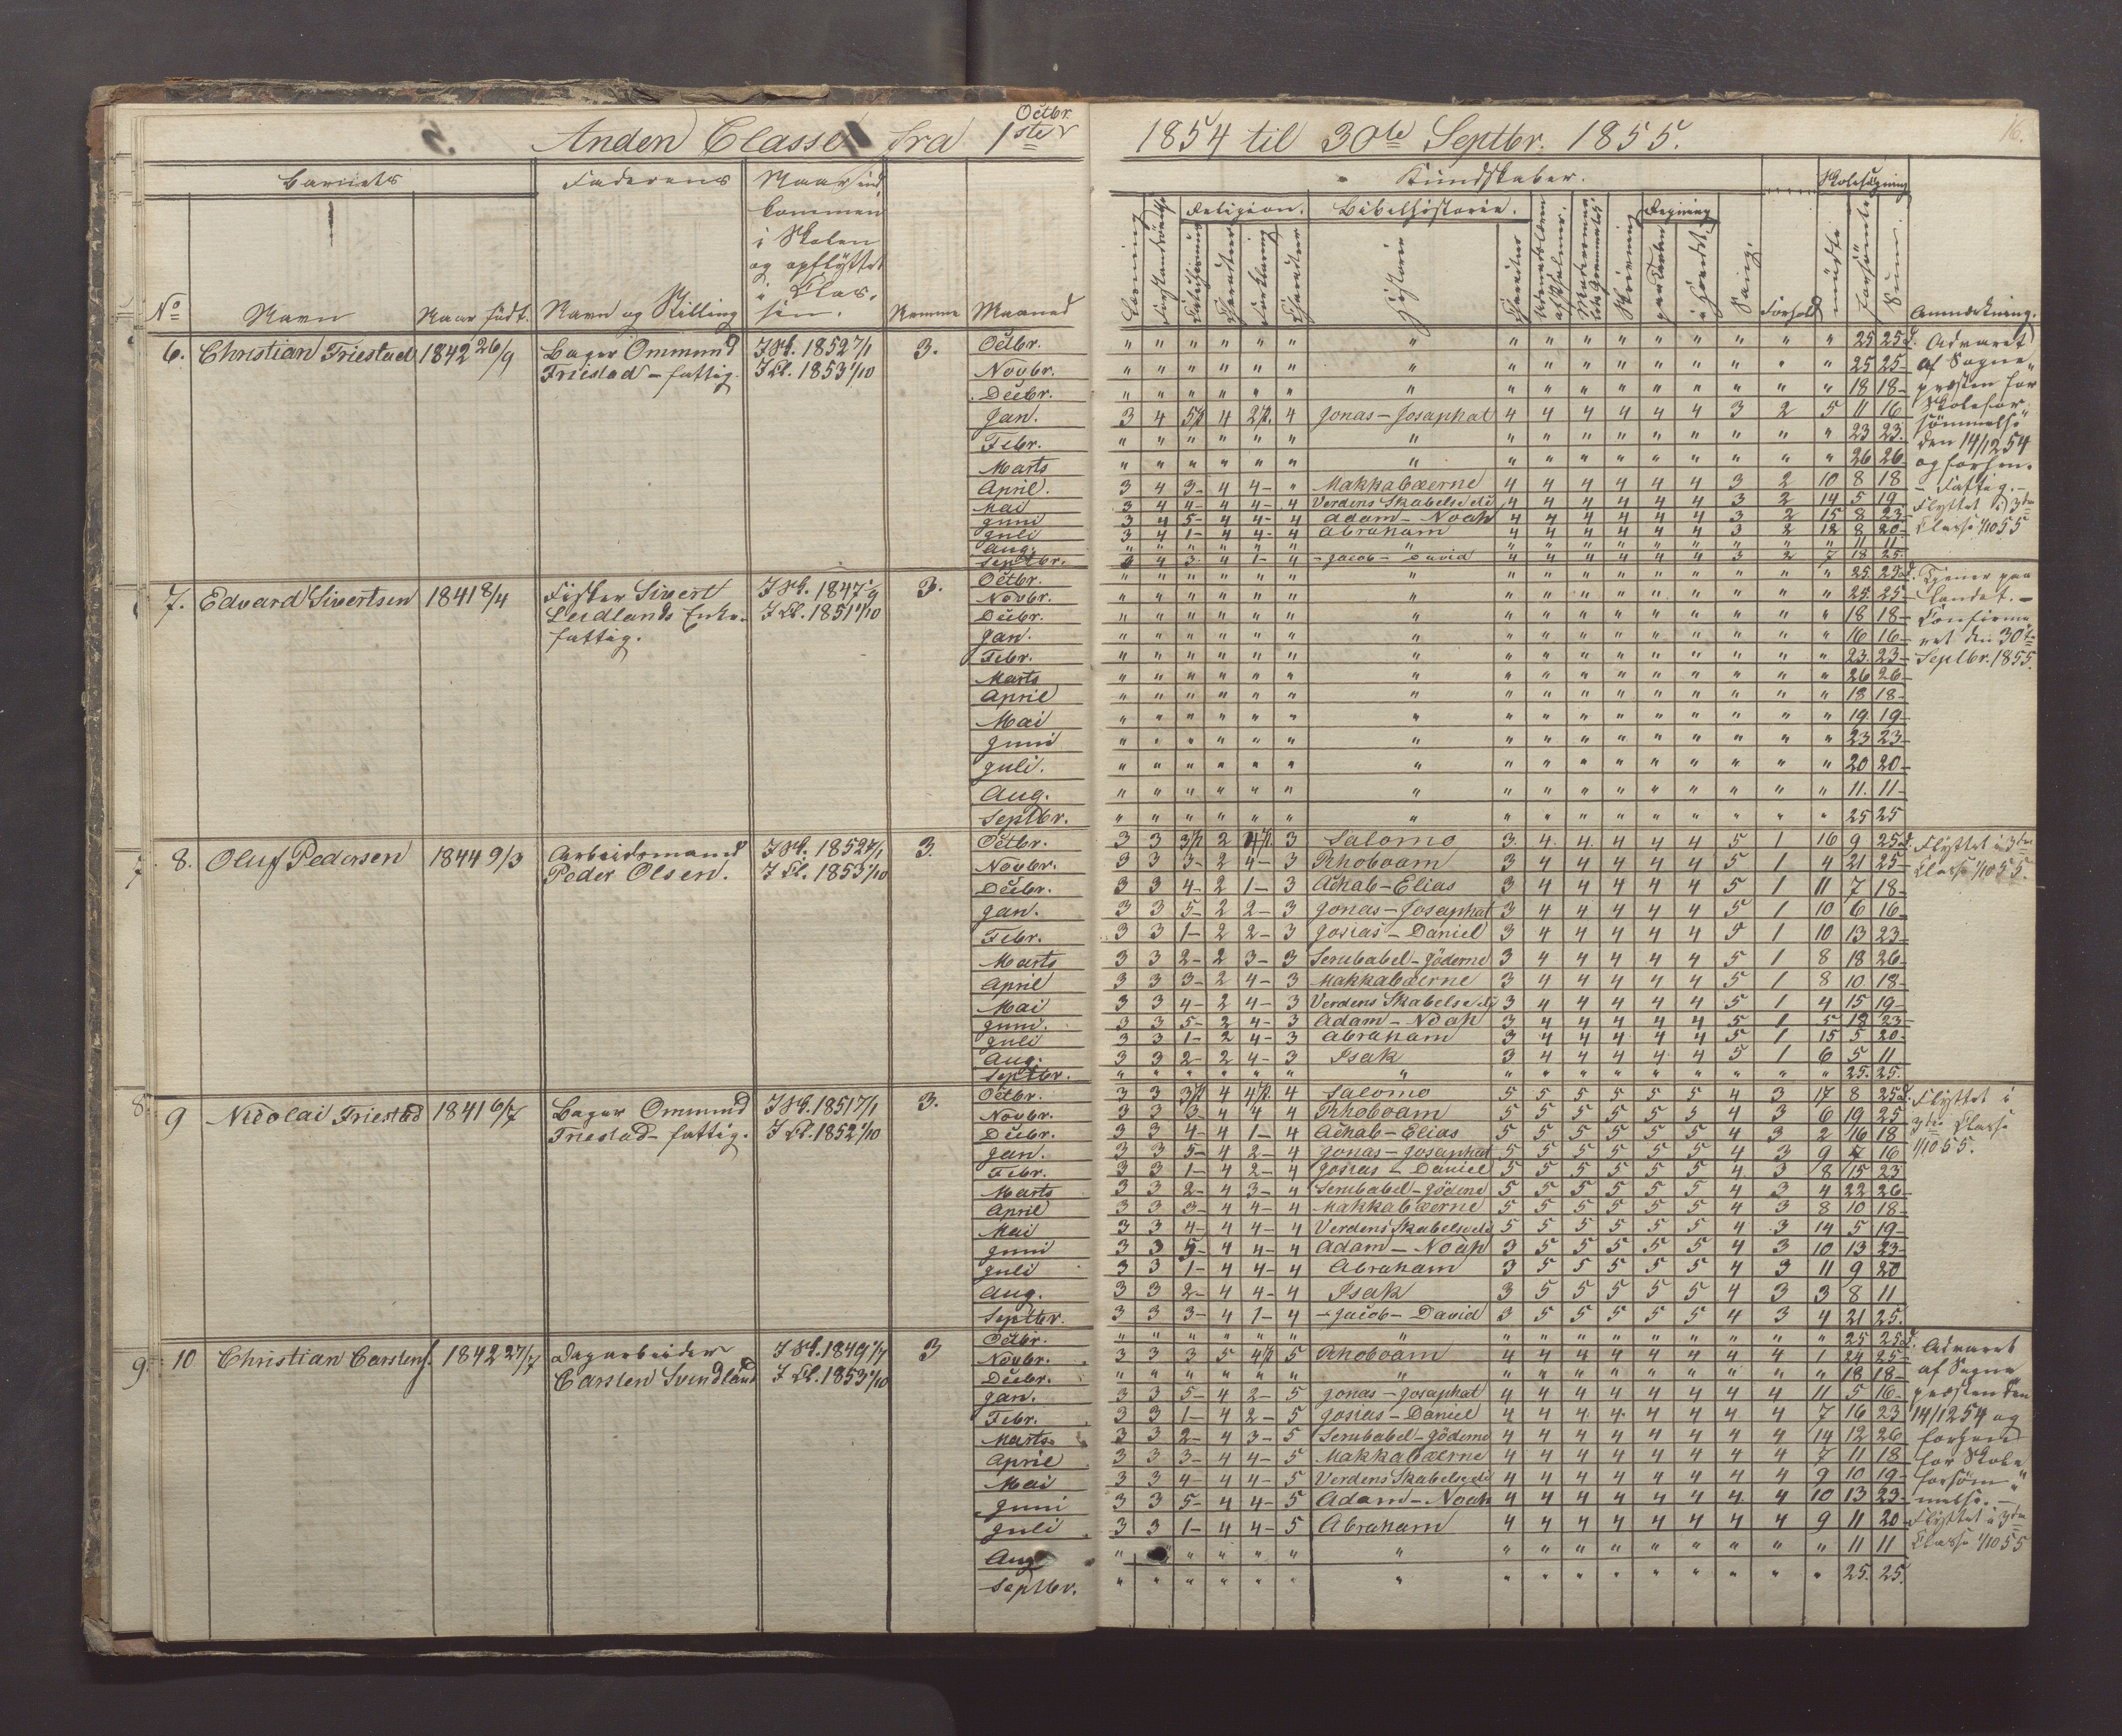 Octbr.
Anden Classe fra 1ste
1854 til 30te Septbr. 1855.
16.
Barnets
Faderens
Naar ind
kommen
i Skolen
og opflyttet
i Clas-
sen.
Kundskaber.
Skolesøgning
Religion.
Bibelhistorie.
Regning
No
Navn
Naar født.
Navn og Stilling
Nummer
Maaned
Læsning
Forklaring
Charakter
Historie
Charakter
Skrivning
Sang.
Forhold
mødte
forsømte
Sum.
Anmærkning.
6. Christian Friestad 1842 26/9
Bager Ommund
Friestad – fattig.
I Sk. 1852 7/1
I Cl. 1853 1/10
3.
Octbr. " " " " " " " " " " " " " " " " 25 25
Novbr. " " " " " " " " " " " " " " " " 25 25
Decbr. " " " " " " " " " " " " " " " " 18 18
Jan. 3 4 5 4 2 4 Jonas – Josaphat 4 4 4 4 4 4 3 2 5 11 16
Febr. " " " " " " " " " " " " " " " " 23 23.
Marts " " " " " " " " " " " " " " " " 26 26
April. 3 4 3– 4 4– " Makkabæerne 4 4 4 4 4 4 3 2 10 8 18
Mai 3 4 4– 4 4– 4 Verdens Skabelse 4 4 4 4 4 4 3 2 14 5 19
Juni 3 4 5– 4 4– 4 Adam – Noah 4 4 4 4 4 4 3 2 15 8 23
Juli 3 4 1– 4 4– 4 Abraham 4 4 4 4 4 4 3 2 12 8 20
Aug. " " " " " " " " " " " " " " " " 11 11
Septbr. 3 4 3 4 1– 4 – Jacob – David 4 4 4 4 4 4 3 2 7 18 25
Advaret
af Sogne-
præsten for
Skolefor-
sømmelse
den 14/12 54
og forhen.
– Fattig. –
Flyttet i 3die
Classe 1/10 55
7. Edvard Sivertsen 1841 8/4
Fisker Sivert
Leidlands Enke.
fattig.
I Sk. 1847
I Cl. 1851 1/10
3.
Octbr. " " " " " " " " " " " " " " " " 25. 25
Novbr. " " " " " " " " " " " " " " " " 25. 25
Decbr. " " " " " " " " " " " " " " " " 18 18
Jan. " " " " " " " " " " " " " " " " 16 16
Febr. " " " " " " " " " " " " " " " " 23. 23
Marts " " " " " " " " " " " " " " " " 26 26
April " " " " " " " " " " " " " " " " 18 18
Mai " " " " " " " " " " " " " " " " 19 19
Juni " " " " " " " " " " " " " " " " 23 23
Juli. " " " " " " " " " " " " " " " " 20 20
Aug. " " " " " " " " " " " " " " " " 11. 11
Septbr. " " " " " " " " " " " " " " " " 25 25
Tjener paa
Landet. –
Confirme-
ret den 30te
Septbr. 1855.
7
8. Oluf Pedersen 1844 9/3
Arbeidsmand
Peder Olsen.
I Sk. 1852
I Cl. 1853 1/10
3.
Octbr. 3 3 3 2 4 3 Salomo 3. 4. 4. 4 4 4 5 1 16 9 25
Novbr. 3 3 3– 2 4– 3 Rhoboam 3 4 4 4 4 4 5 1 4 21 25
Decbr. 3 3 4– 2 1– 3 Achab – Elias 3 4 4 4 4 4 5 1 11 7 18
Jan. 3 3 5– 2 2– 3 Jonas – Josaphat 3 4 4 4 4 4 5 1 10 6 16
Febr. 3 3 1– 2 2– 3 Josias – Daniel 3 4 4 4 4 4 5 1 10 13 23
Marts 3 3 2– 2 3– 3 Serubabel – Jöderne 3 4 4 4 4 4 5 1 8 18 26
April 3 3 3– 2 4– 3 Makkabæerne 3 4 4 4 4 4 5 1 8 10 18
Mai 3 3 4– 2 4– 3 Verdens Skabelse 3 4 4 4 4 4 5 1 4 15 19
Juni. 3 3 5– 2 4– 3 Adam – Noah 3 4 4 4 4 4 5 1 5 18 23
Juli 3 3 1– 2 4– 3 Abraham 3 4 4 4 4 4 5 1 15 5 20
Aug. 3 3 2– 2 4– 3 Isak 3 4 4 4 4 4 5 1 6 5 11
Septbr. " " " " " " " " " " " " " " " " 25. 25.
Flyttet i 3die
Classe 1/10 55.
8.
9 Nicolai Friestad 1841 6/7
Bager Ommund
Friestad – fattig.
I Sk. 1851 7/1
I Cl. 1852 1/10
3.
Octbr. 3 3 3 4 4 4 Salomo 5 5 5 5 5 5 4 3 17 8 25
Novbr. 3 3 3 4 4 4 Rhoboam 5 5 5 5 5 5 4 3 6 19 25
Decbr. 3 3 4– 4 1– 4 Achab – Elias 5 5 5 5 5 5 4 3 2 16 18
Jan. 3 3 5– 4 2– 4 Jonas – Josaphat 5 5 5 5 5 5 4 3 9 7 16
Febr. 3 3 1– 4 2– 4 Josias – Daniel 5 5 5 5 5 5 4 3 8 15 23
Marts 3 3 2– 4 3– 4 Serubabel – Jöderne 5 5 5 5 5 5 4 3 4 22 26
April 3 3 3– 4 4– 4 Makkabæerne 5 5 5 5 5 5 4 3 8 10 18
Mai 3 3 4– 4 4– 4 Verdens Skabelse 5 5 5 5 5 5 4 3 14 5 19
Juni 3 3 5– 4 4– 4 Adam – Noah 3 5 5 5 5 5 4 3 10 13 23
Juli 3 3 1– 4 4– 4 Abraham 3 5 5 5 5 5 4 3 11 9 20
Aug. 3 3 2– 4 4– 4 Isak 3 5 5 5 5 5 4 3 3 8 11
Septbr. 3 3 3– 4 1– 4 – Jacob – David 3 5 5 5 5 5 4 3 4 21 25.
Flyttet i
3die Classe
1/10 55.
9.
10 Christian Carstens. 1842 27/7
Dagarbeider
Carsten Svindland
I Sk. 1849
I Cl. 1853 1/10
3
Octbr. " " " " " " " " " " " " " " " " 25 25
Novbr. 3 3 3 5 4 5 Rhoboam 4 4 4 4 4 4 4 4 1 24 25
Decbr. " " " " " " " " " " " " " " " " 18 18
Jan. 3 3 5– 4 2– 5 Jonas – Josaphat 4 4 4 4 4 4 4 4 11 5 16
Febr. 3 3 1– 4 2– 5 Josias – Daniel 4 4 4 4 4 4 4 4 7 16 23
Marts 3 3 2– 4 3– 5 Serubabel – Jöderne 4 4 4 4 4 4 4 4 14 12 26
April 3 3 3– 4 4– 5 Makkabæerne 4 4 4 4 4 4 4 4 7 11 18
Mai 3 3 4– 4 4– 5 Verdens Skabelse 4 4 4 4 4 4 4 4 9 10 19
Juni 3 3 5– 4 4– 5 Adam – Noah 4 4 4 4 4 4 4 4 10 13 23
Juli 3 3 1– 4 4– 5 Abraham 4 4 4 4 4 4 4 4 9 11 20
Aug. " " " " " " " " " " " " " " " 11 11
Septbr. " " " " " " " " " " " " " " " " 25. 25.
Advaret
af Sogne-
præsten den
14/12 54 og
forhen
for Skole-
forsøm-
melse. –
Flyttet i 3die
Classe 1/10 55